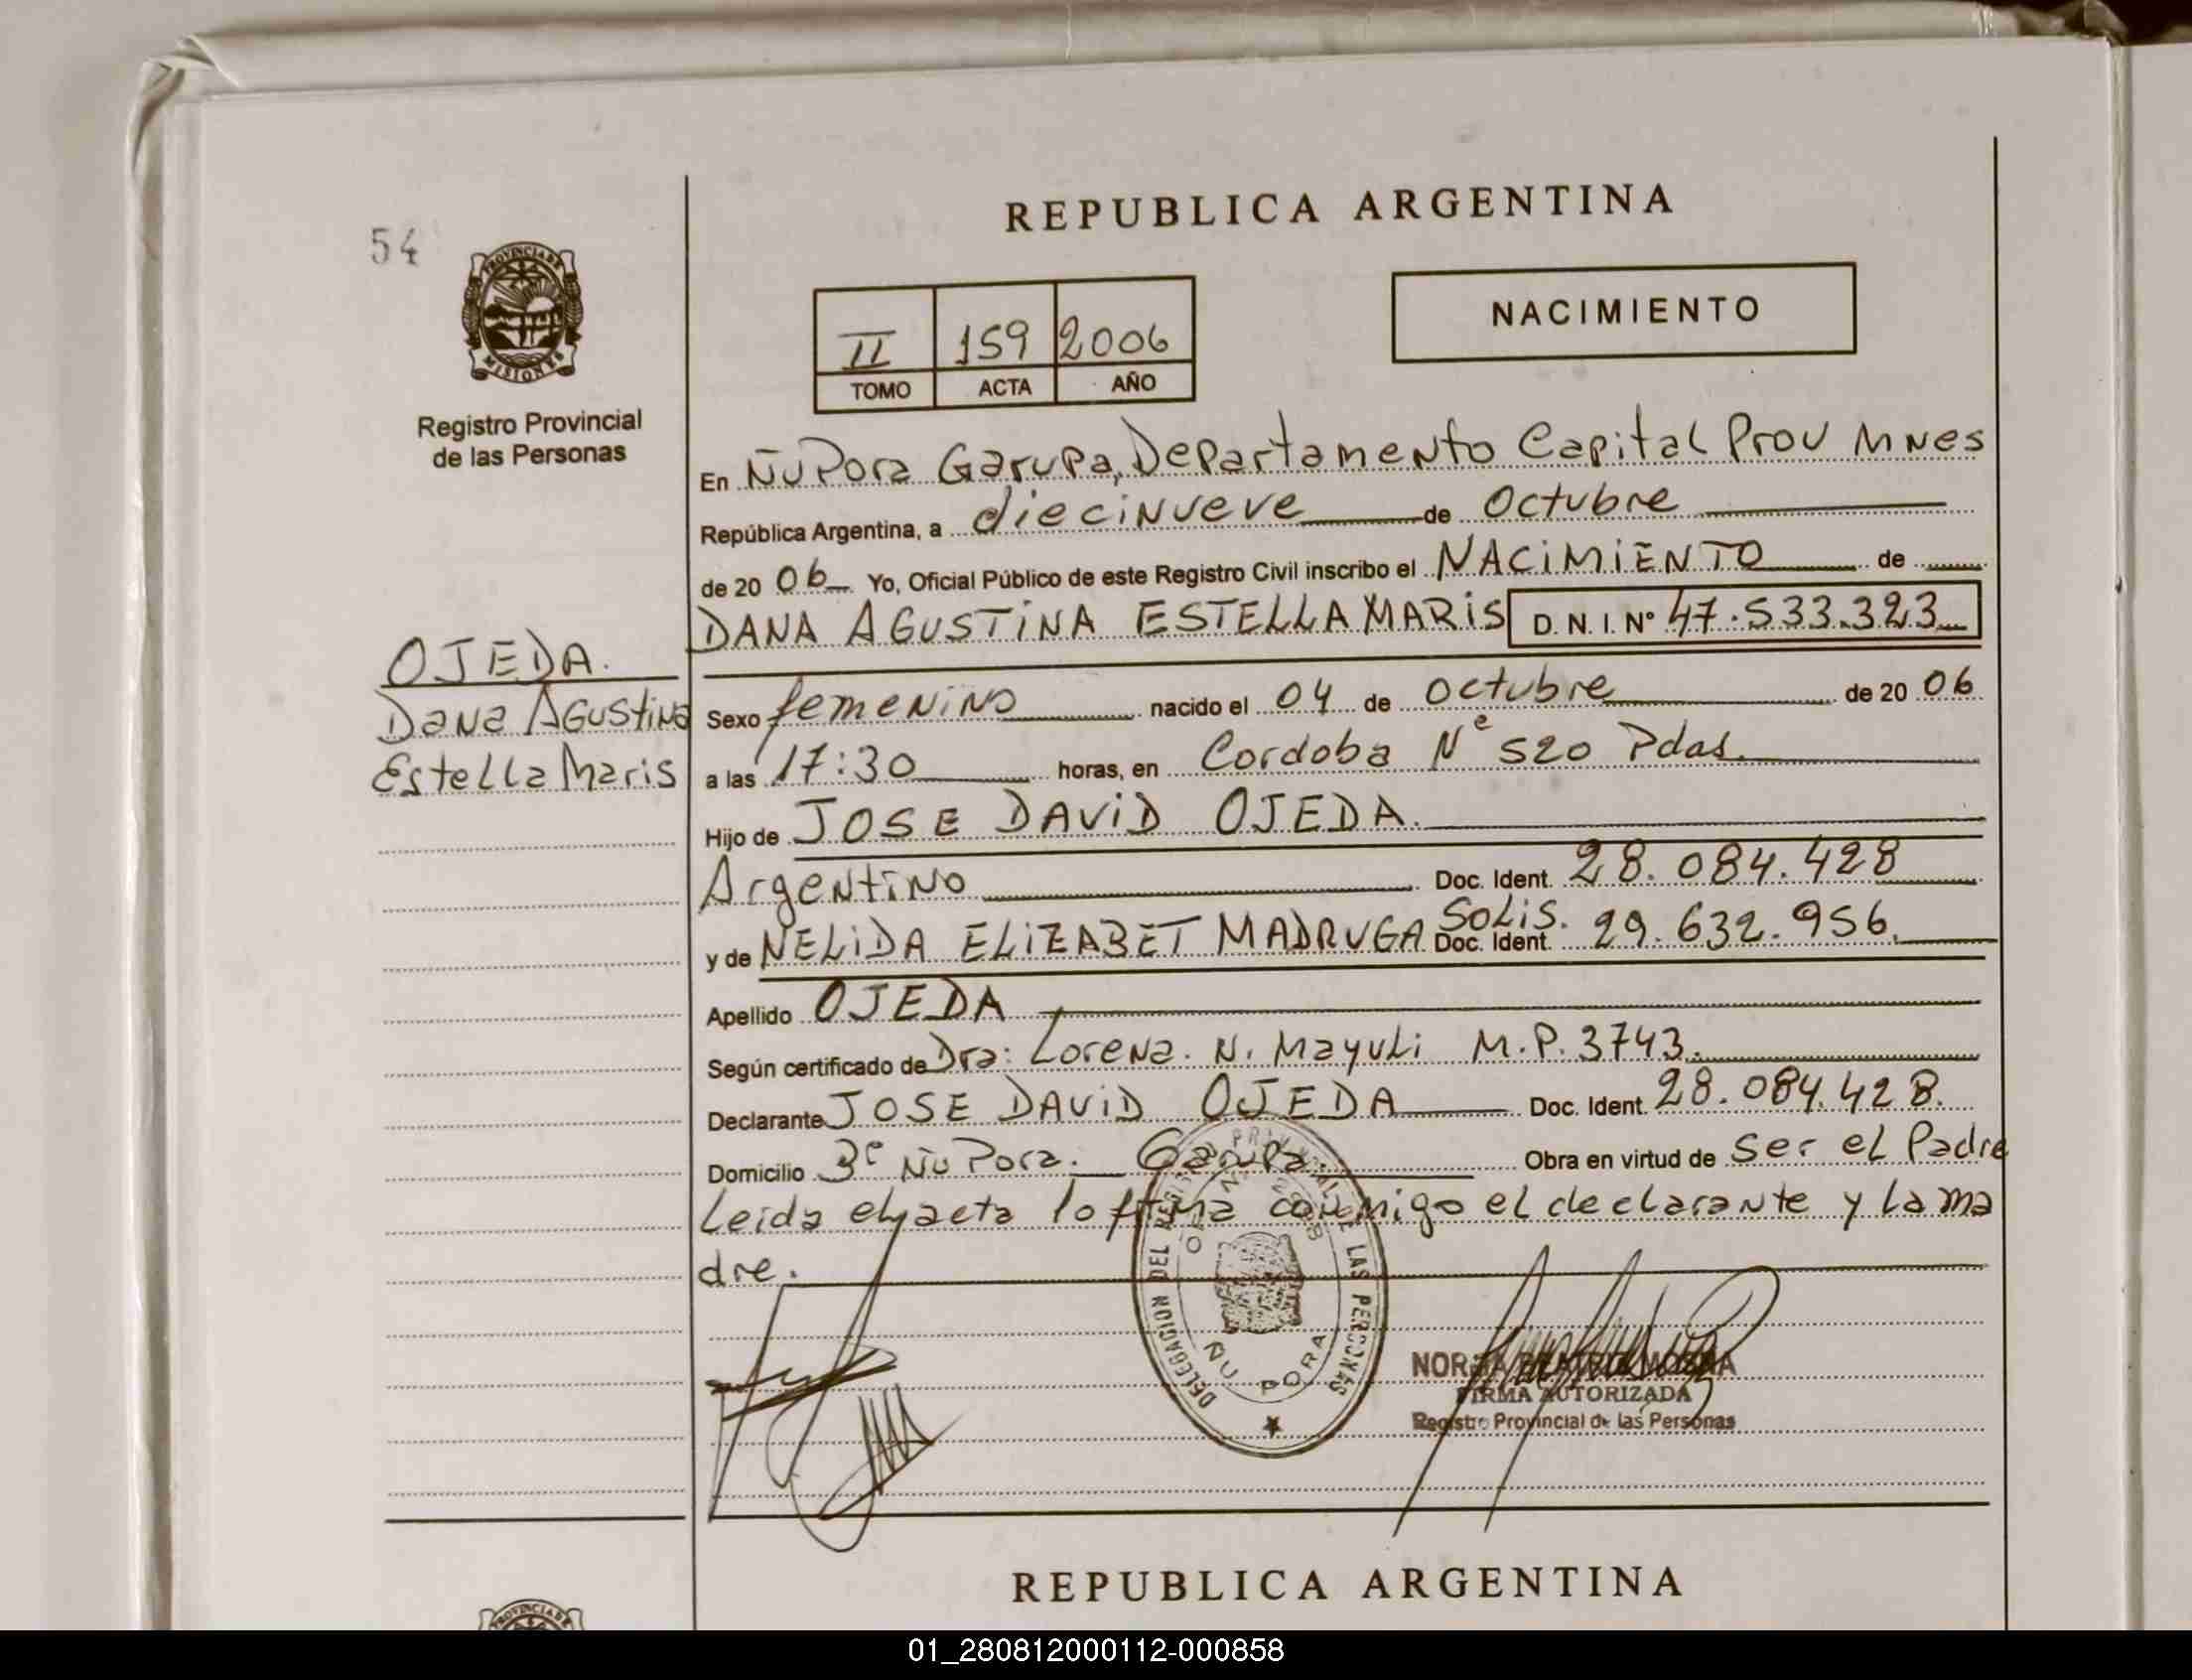 REPUBLICA ARGENTINA
54
PROVINCIA DE
MISIONES
Registro Provincial
de las Personas
II 159 2006
TOMO ACTA AÑO
NACIMIENTO
En ÑuPora Garupa, Departamento Capital Prov Mnes
República Argentina, a diecinueve de Octubre
de 20 06 Yo, Oficial Público de este Registro Civil inscribo el NACIMIENTO de
DANA AGUSTINA ESTELLA MARIS D. N. I. Nº 47.533.323
OJEDA.
Dana Agustina
Estella Maris
Sexo femenino nacido el 04 de Octubre de 20 06
a las 17:30 horas, en Cordoba Nº 520 Pdas.
Hijo de JOSE DAVID OJEDA.
Argentino Doc. Ident. 28.084.428
y de NELIDA ELIZABET MADRUGA SOLIS. Doc. Ident. 29.632.956.
Apellido OJEDA
Según certificado de Dra: Lorena. N. Mayuli M.P. 3743.
Declarante JOSE DAVID OJEDA Doc. Ident. 28.084.428.
Domicilio Bº Ñu Pora. Garupa. Obra en virtud de Ser el Padre
Leida el acta la firma conmigo el declarante y la ma
dre.
DELEGACION DEL REGISTRO PROVINCIAL DE LAS PERSONAS
ÑU PORA
NORMA BEATRIZ
FIRMA AUTORIZADA
Registro Provincial de las Personas
REPUBLICA ARGENTINA
PROVINCIA DE
01_280812000112-000858